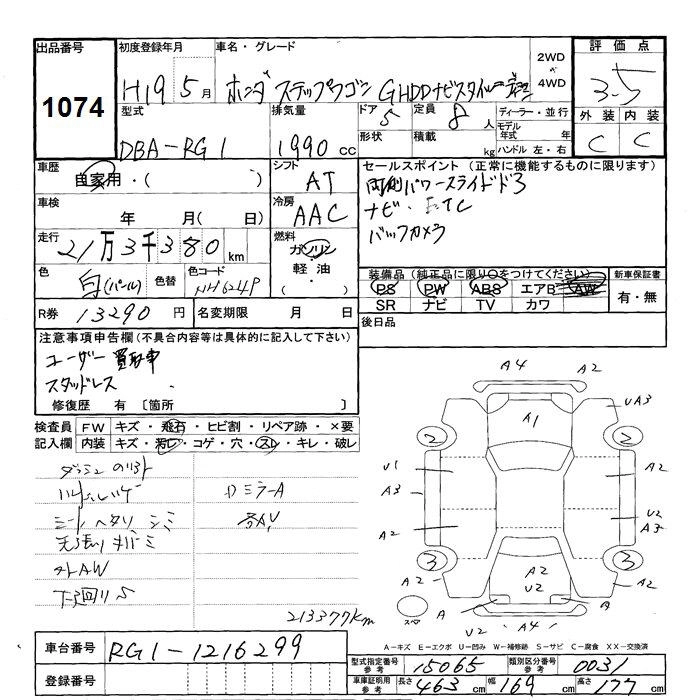 出品番号 初度登録年月 車名・グレード 2WD 評価点
1074 H19 5月 ホンダ ステップワゴン G HDDナビスタイル 4WD 3.5
型式 排気量 ドア 定員 ディーラー・並行 外装 内装
DBA-RG1 1990cc 5 8人 モデル年式 年 C C
形状 積載 kg ハンドル 左・右
車歴 シフト セールスポイント (正常に機能するものに限ります)
自家用・( ) AT 両側パワースライドドア
車検 冷房 ナビ・ETC
年 月( 日) AAC バックカメラ
走行 燃料
21万3千380km ガソリン
軽油・
色 色替 色コード 装備品 (純正品に限り○をつけてください) 新車保証書
白(パール) NH624P PS PW ABS エアB AW 有・無
SR ナビ TV カワ
R券 13290円 名変期限 月 日 後日品
注意事項申告欄(不具合内容等は具体的に記入して下さい)
ユーザー買取車
スタッドレス
修復歴 有 〔箇所 〕
検査員 FW キズ・飛石・ヒビ割・リペア跡・×要
記入欄 内装 キズ・汚レ・コゲ・穴・スレ・キレ・破レ
シートヘタリ シミ
天張り
外AW
下廻りS
213377km
A4 A2
A1 UA3
2 2
U1 A2
A3
U2
A2 A3
3 3
A2 A2 A2
U2
A A
U2 A4 A2
スペア
A-キズ E-エクボ U-凹み W-補修跡 S-サビ C-腐食 XX-交換済
車台番号 RG1-1216299
登録番号
型式指定番号 参考 15065 類別区分番号 参考 0031
車庫証明用 参考 長さ 463cm 幅 169cm 高さ 177cm